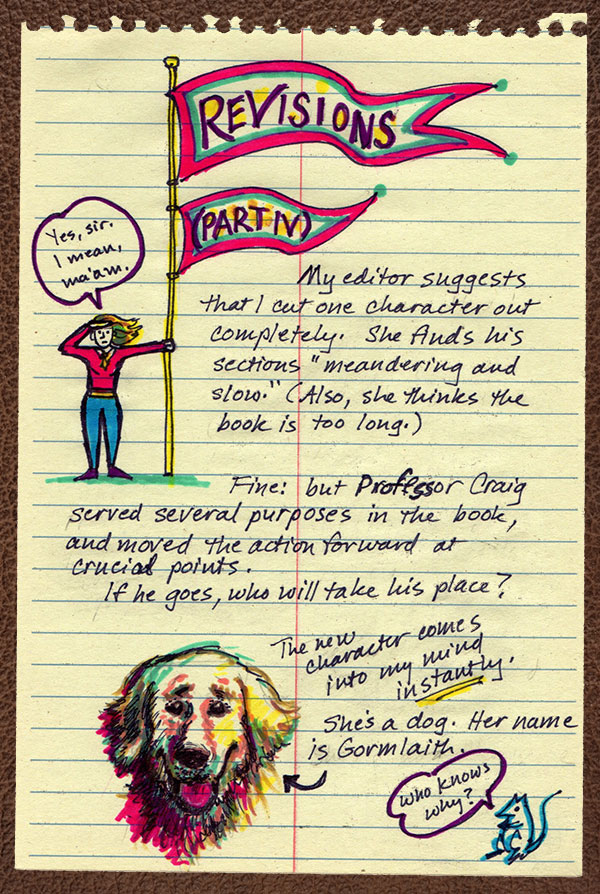 REVISIONS
(PART IV)
Yes, sir.
I mean,
ma'am.
My editor suggests
that I cut one character out
completely. She finds his
sections "meandering and
slow." (Also, she thinks the
book is too long.)
Fine: but Professor Craig
served several purposes in the book,
and moved the action forward at
crucial points.
If he goes, who will take his place?
The new
character comes
into my mind
instantly.
She's a dog. Her name
is Gormlaith.
who knows
why?